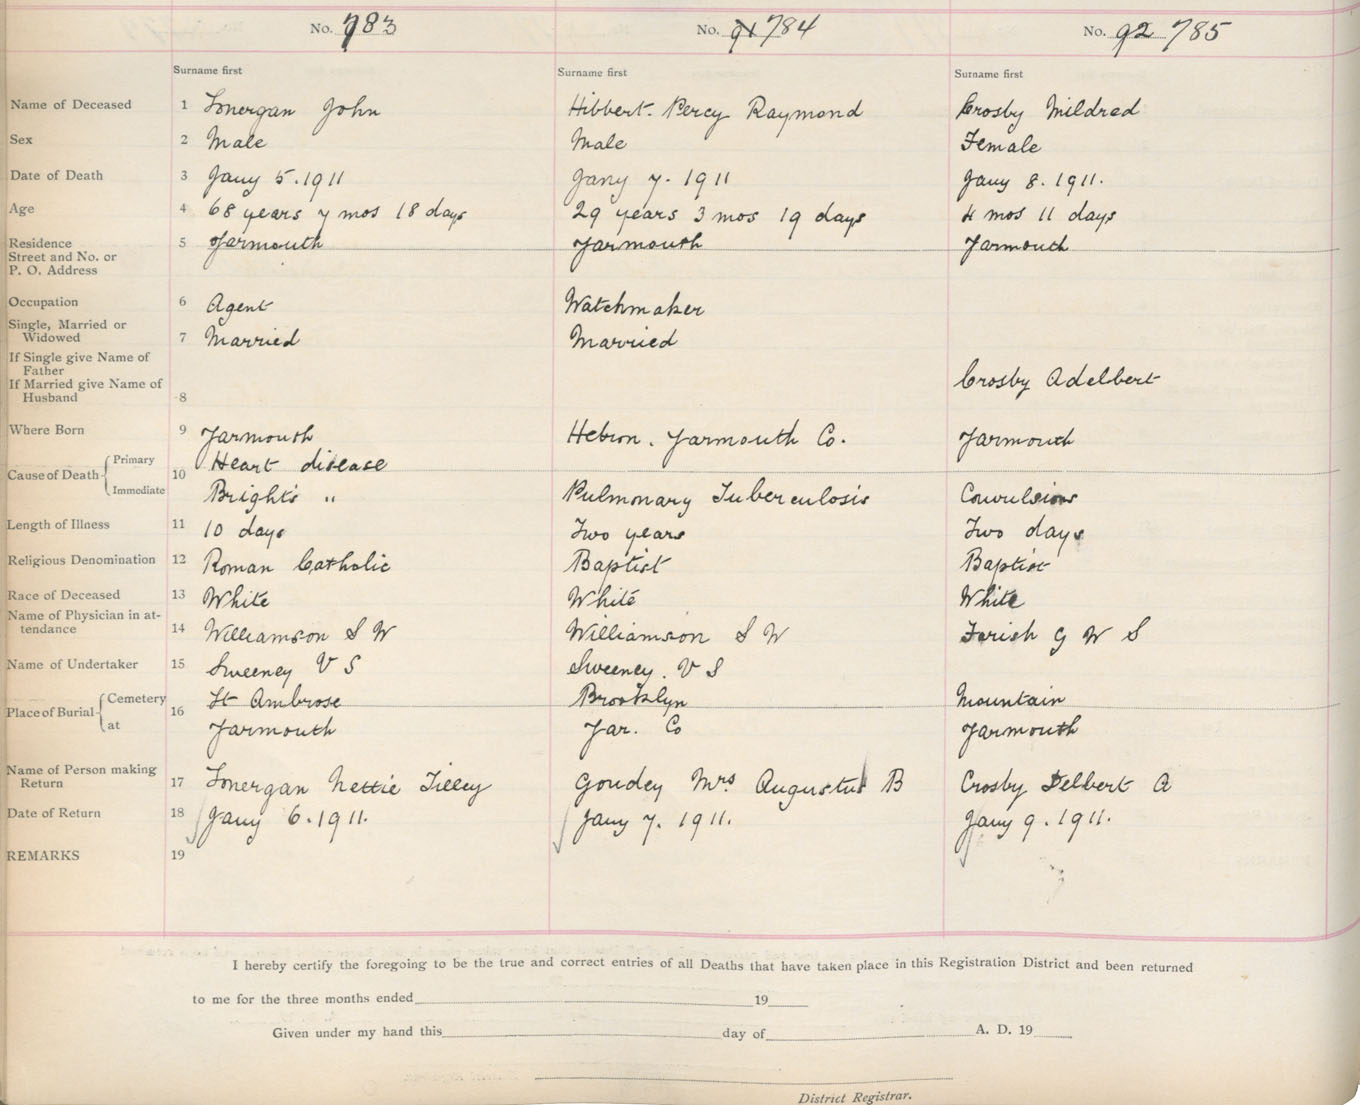 No. 783 No. 91 784 No. 92 785
Surname first Surname first Surname first
Name of Deceased 1 Lonergan John Hibbert. Percy Raymond Crosby Mildred
Sex 2 Male Male Female
Date of Death 3 Jany 5. 1911 Jany 7. 1911 Jany 8. 1911.
Age 4 68 years 7 mos 18 days 29 years 3 mos 19 days 4 mos 11 days
Residence
Street and No. or
P. O. Address 5 Yarmouth Yarmouth Yarmouth
Occupation 6 Agent Watchmaker
Single, Married or
Widowed 7 Married Married
If Single give Name of
Father
If Married give Name of Crosby Adelbert
Husband 8
Where Born 9 Yarmouth Hebron. Yarmouth Co. Yarmouth
Primary Heart disease
Cause of Death 10
Immediate Bright's " Pulmonary Tuberculosis Convulsions
Length of Illness 11 10 days Two years Two days
Religious Denomination 12 Roman Catholic Baptist Baptist
Race of Deceased 13 White White White
Name of Physician in at-
tendance 14 Williamson S W Williamson S W Farish G W S
Name of Undertaker 15 Sweeney V S Sweeney. V S
Cemetery St Ambrose Brooklyn Mountain
Place of Burial 16
at Yarmouth Yar. Co Yarmouth
Name of Person making
Return 17 Lonergan Nettie Tilley Goudey Mrs Augustus B Crosby Delbert A
Date of Return 18 Jany 6. 1911. Jany 7. 1911. Jany 9. 1911.
REMARKS 19
I hereby certify the foregoing to be the true and correct entries of all Deaths that have taken place in this Registration District and been returned
to me for the three months ended 19
Given under my hand this day of A. D. 19
District Registrar.